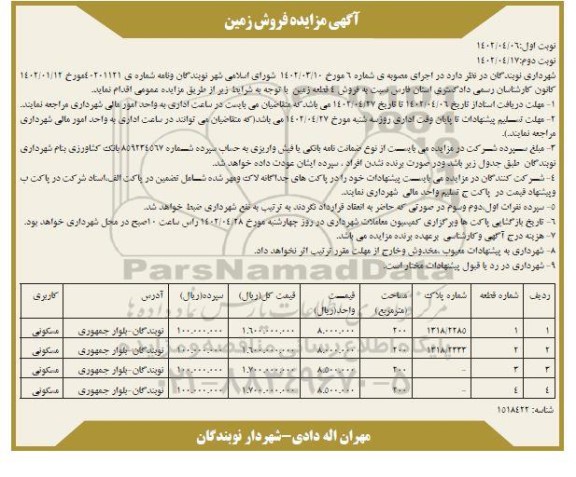 آگهی مزایده فروش زمین
نوبت اول:۱۴۰۲/۰۴/۰۶
نوبت دوم:۱۴۰۲/۰۴/۱۷
شهرداری نوبندگان در نظر دارد در اجرای مصوبه ی شماره ۶ مورخ ۱۴۰۲/۰۳/۱۰ شورای اسلامی شهر نوبندگان ونامه شماره ی ۴۰۲۰۱۱۲۱مورخ ۱۴۰۲/۰۱/۱۲
کانون کارشناسان رسمی دادگستری استان فارس نسبت به فروش ۴ قطعه زمین با توجه به شرایط زیر از طریق مزایده عمومی اقدام نماید.
۱- مهلت دریافت اسناداز تاریخ ۱۴۰۲/۰۴/۰۶ تا تاریخ ۱۴۰۲/۰۴/۲۷ می باشد که متقاضیان می بایست در ساعت اداری به واحد امور مالی شهرداری مراجعه نمایند.
۲- مهلت تسلیم پیشنهادات تا پایان وقت اداری روزسه شنبه مورخ ۱۴۰۲/۰۴/۲۷ می باشد(که متقاضیان می توانند در ساعت اداری به واحد امور مالی شهرداری
مراجعه نمایند.).
۳- مبلغ سپرده شرکت در مزایده می بایست از نوع ضمانت نامه بانکی یا فیش واریزی به حساب سپرده شماره ۸۵۹۲۳۴۵۶۷بانک کشاورزی بنام شهرداری
نوبندگان طبق جدول زیر باشد ودر صورت برنده نشدن افراد ، سپرده ایشان عودت داده خواهد شد.
۴- شرکت کنندگان در مزایده می بایست پیشنهادات خود را در پاکت های جداگانه لاک ومهر شده شامل تضمین در پاکت الف،اسناد شرکت در پاکت ب
وپیشنهاد قیمت در پاکت ج تسلیم واحد مالی شهرداری نمایند.
۵- سپرده نفرات اول،دوم وسوم در صورتی که حاضر به انعقاد قرارداد نگردند به ترتیب به نفع شهرداری ضبط خواهد شد.
۶- تاریخ بازگشایی پاکت ها وبرگزاری کمیسیون معاملات شهرداری در روز چهارشنبه مورخ ۱۴۰۲/۰۴/۲۸ راس ساعت ۱۰صبح در محل شهرداری خواهد بود.
۷- هزینه درج آگهی وکارشناسی برعهده برنده مزایده می باشد.
۸- شهرداری به پیشنهادات معیوب ،مخدوش وخارج از مهلت مقرر ترتیب اثر نخواهد داد.
۹- شهرداری در رد یا قبول پیشنهادات مختار است.
ParsNamadData
ردیف شماره قطعه شماره پلاک مساحت (مترمربع) قیمت واحد(ریال) قیمت کل(ریال) سپرده(ریال) آدرس کاربری
۱ ۱ ۱۳۱۸/۲۲۸۵ ۲۰۰ ۸.۰۰۰.۰۰۰ ۱.۶۰۰.۰۰۰.۰۰۰ ۱۰۰.۰۰۰.۰۰۰ نوبندگان-بلوار جمهوری مسکونی
۲ ۲ ۱۳۱۸/۲۲۳۳ ۲۰۰ ۸.۰۰۰.۰۰۰ ۱.۶۰۰.۰۰۰.۰۰۰ ۱۰۰.۰۰۰.۰۰۰ نوبندگان-بلوار جمهوری مسکونی
۳ ۳ - ۲۰۰ ۸.۵۰۰.۰۰۰ ۱.۷۰۰.۰۰۰.۰۰۰ ۱۰۰.۰۰۰.۰۰۰ نوبندگان-بلوار جمهوری مسکونی
۴ ۴ - ۲۰۰ ۸.۵۰۰.۰۰۰ ۱.۷۰۰.۰۰۰.۰۰۰ ۱۰۰.۰۰۰.۰۰۰ نوبندگان-بلوار جمهوری مسکونی
شناسه: ۱۵۱۸۴۲۲
مهران اله دادی-شهردار نوبندگان